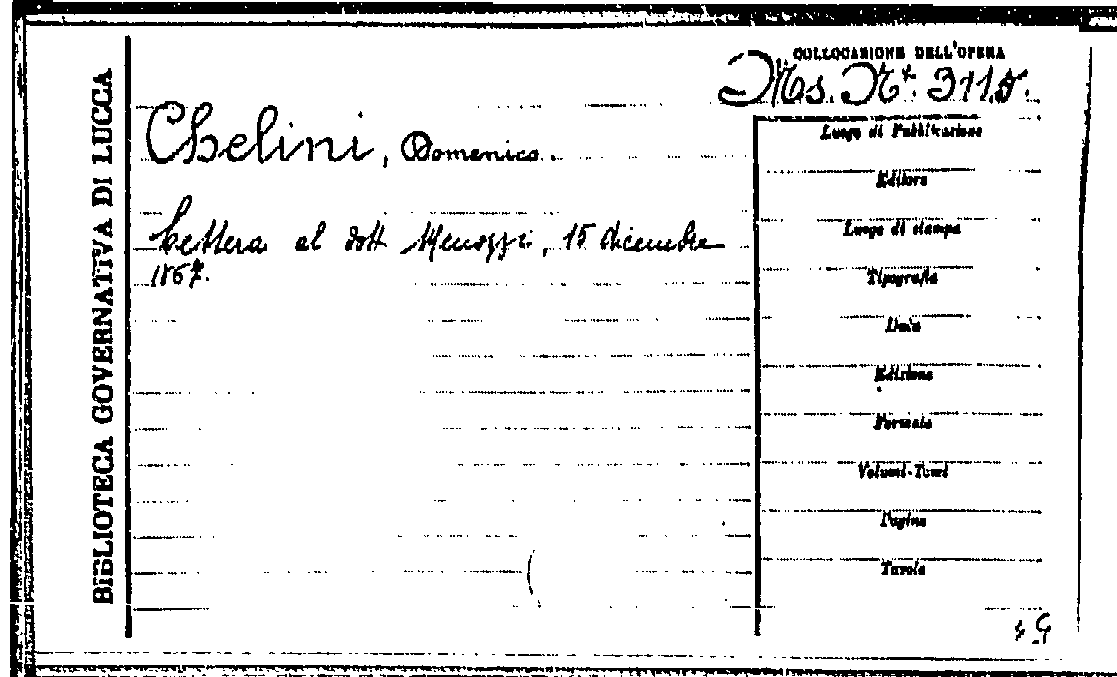 BIBLIOTECA GOVERNATIVA DI LUCCA
COLLOCAZIONE DELL'OPERA
Ms. Nr. 3115.
Chelini, Domenico.
Lettera al dott Menozzi, 15 dicembre
1867.
Luogo di Pubblicazione
Editore
Luogo di stampa
Tipografia
Data
Edizione
Formato
Volumi-Tomi
Pagine
Tavole